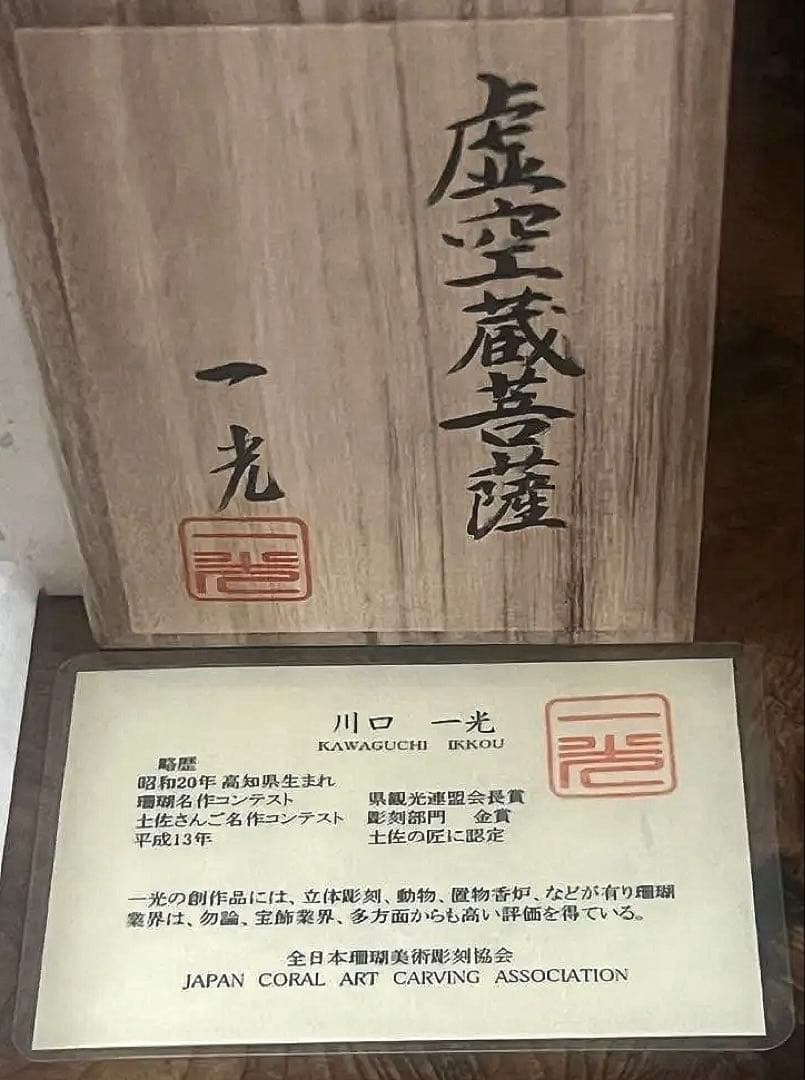 虚空蔵菩薩
一光
一光
川口 一光
KAWAGUCHI IKKOU
一光
略歴
昭和20年 高知県生まれ
珊瑚名作コンテスト 県観光連盟会長賞
土佐さんご名作コンテスト 彫刻部門 金賞
平成13年 土佐の匠に認定
一光の創作品には、立体彫刻、動物、置物香炉、などが有り珊瑚
業界は、勿論、宝飾業界、多方面からも高い評価を得ている。
全日本珊瑚美術彫刻協会
JAPAN CORAL ART CARVING ASSOCIATION